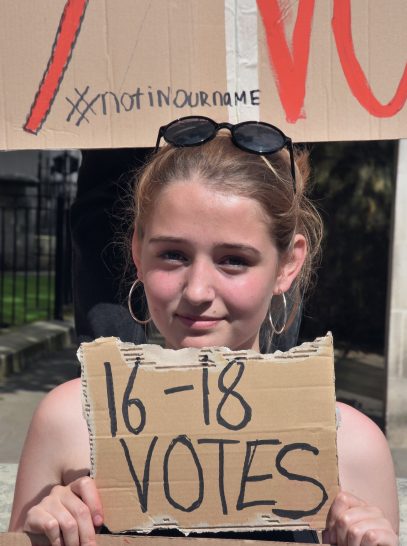 #notinourname
16-18
VOTES